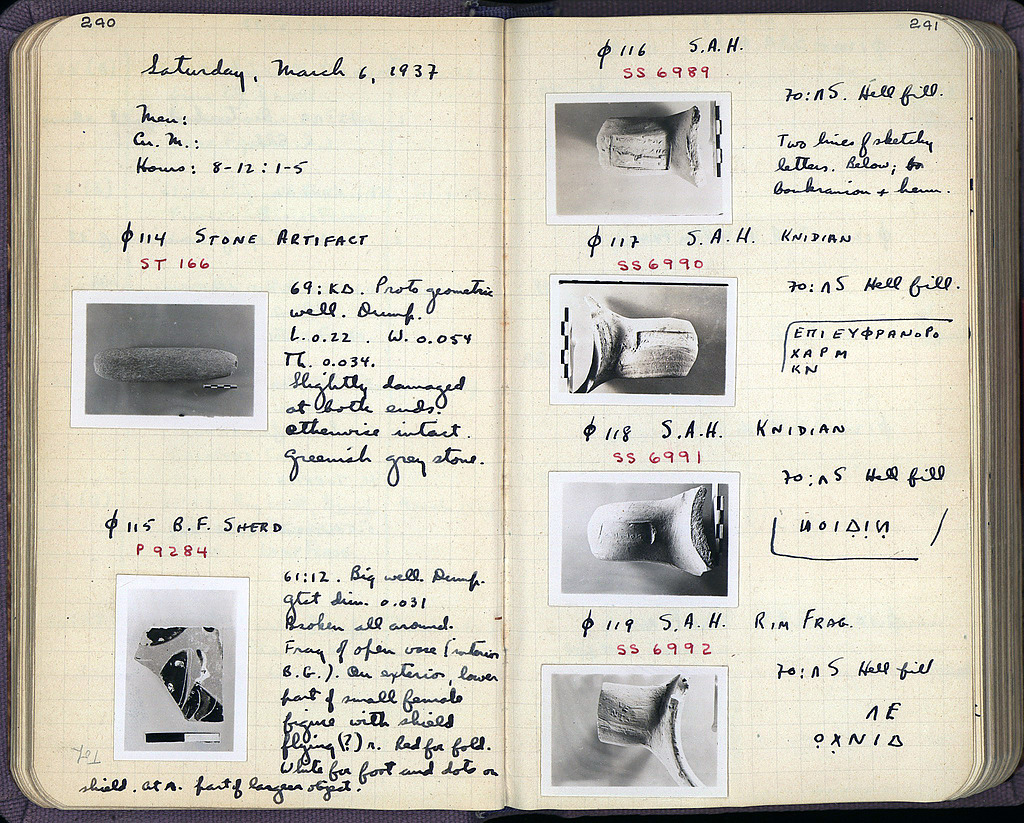 240
Saturday, March 6, 1937
Men:
Cu. M.:
Hours: 8-12 : 1-5
φ 114 STONE ARTIFACT
ST 166
69:ΚΔ. Protogeometric
well. Dump.
L. 0.22 . W. 0.054
Th. 0.034.
Slightly damaged
at both ends.
otherwise intact.
Greenish grey stone.
φ 115 B.F. SHERD
P 9284
61:12. Big well. Dump.
gtst dim. 0.031
Broken all around.
Frag of open vase (interior
B.G.). On exterior, lower
part of small female
figure with shield
flying (?) r. Red for fold.
White for foot and dots on
shield. At r. part of larger object.
241
φ 116 S.A.H.
SS 6989
70:ΛS. Hell fill.
Two lines of sketchy
letters. Below;
boukranion + herm.
φ 117 S.A.H. KNIDIAN
SS 6990
70:ΛS Hell fill.
ΕΠΙ ΕΥΦΡΑΝΟΡΟ
ΧΑΡΜ
ΚΝ
φ 118 S.A.H. KNIDIAN
SS 6991
70:ΛS Hell fill
φ 119 S.A.H. RIM FRAG.
SS 6992
70:ΛS Hell fill
ΛΕ